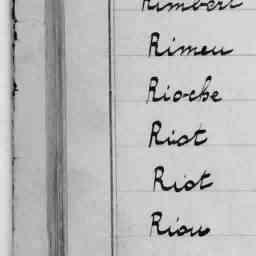 Rimbert
Rimeu
Rioche
Riot
Riot
Riou